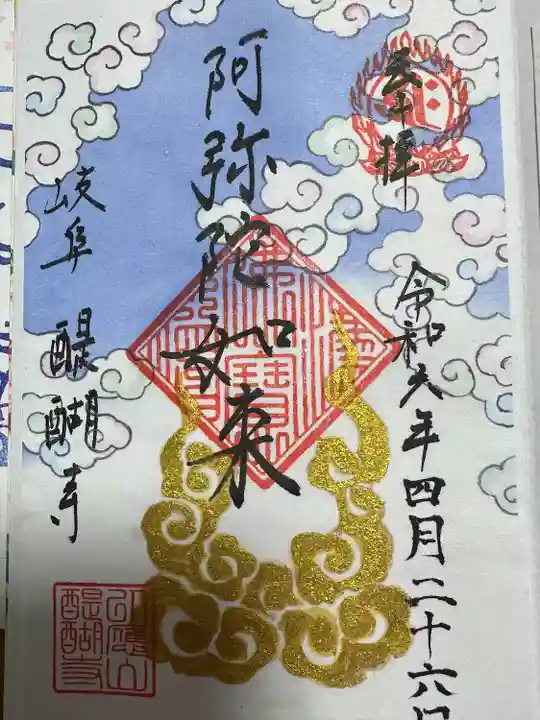 奉拝
令和六年四月二十六日
阿弥陀如来
岐阜 醍醐寺
醍醐寺